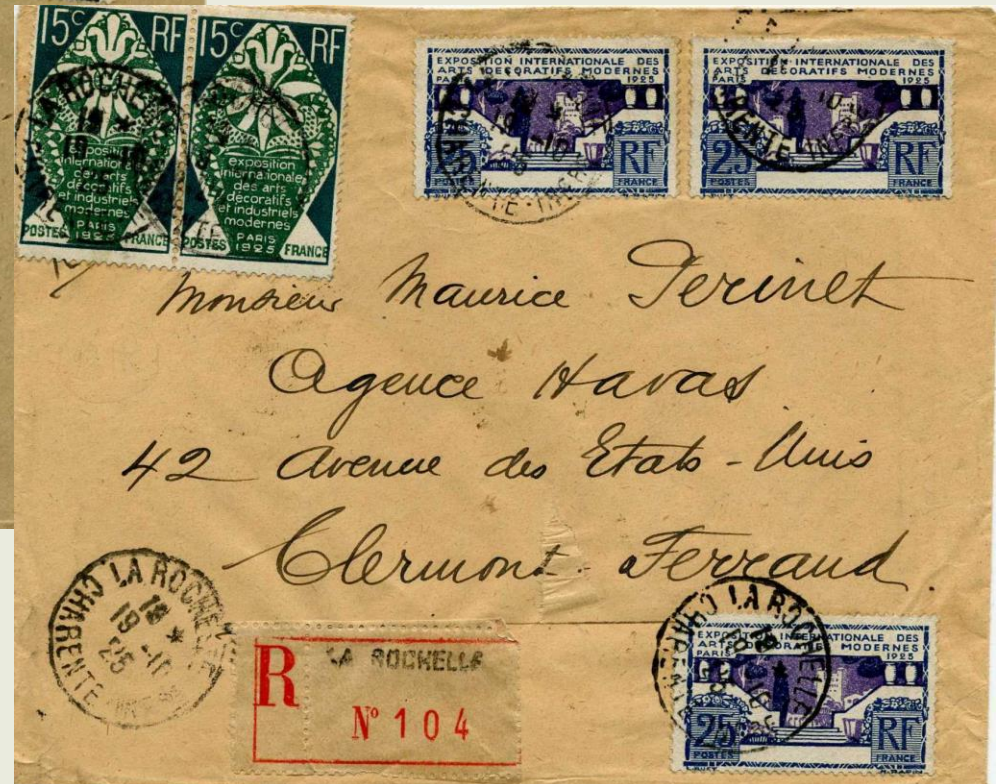 15c RF 15c RF
exposition
internationale
des arts
décoratifs
et industriels
modernes
PARIS
1925
POSTES FRANCE
exposition
internationale
des arts
décoratifs
et industriels
modernes
PARIS
1925
POSTES FRANCE
EXPOSITION INTERNATIONALE DES
ARTS DÉCORATIFS MODERNES
PARIS 1925
25 RF
POSTES FRANCE
EXPOSITION INTERNATIONALE DES
ARTS DÉCORATIFS MODERNES
PARIS 1925
25 RF
POSTES FRANCE
Monsieur Maurice Perinet
Agence Havas
42 Avenue des Etats-Unis
Clermont-Ferrand
LA ROCHELLE
18 *
19 -11
25
CHARENTE
R
LA ROCHELLE
N° 104
LA ROCHELLE
EXPOSITION INTERNATIONALE DES
ARTS DÉCORATIFS MODERNES
PARIS 1925
25 RF
POSTES FRANCE